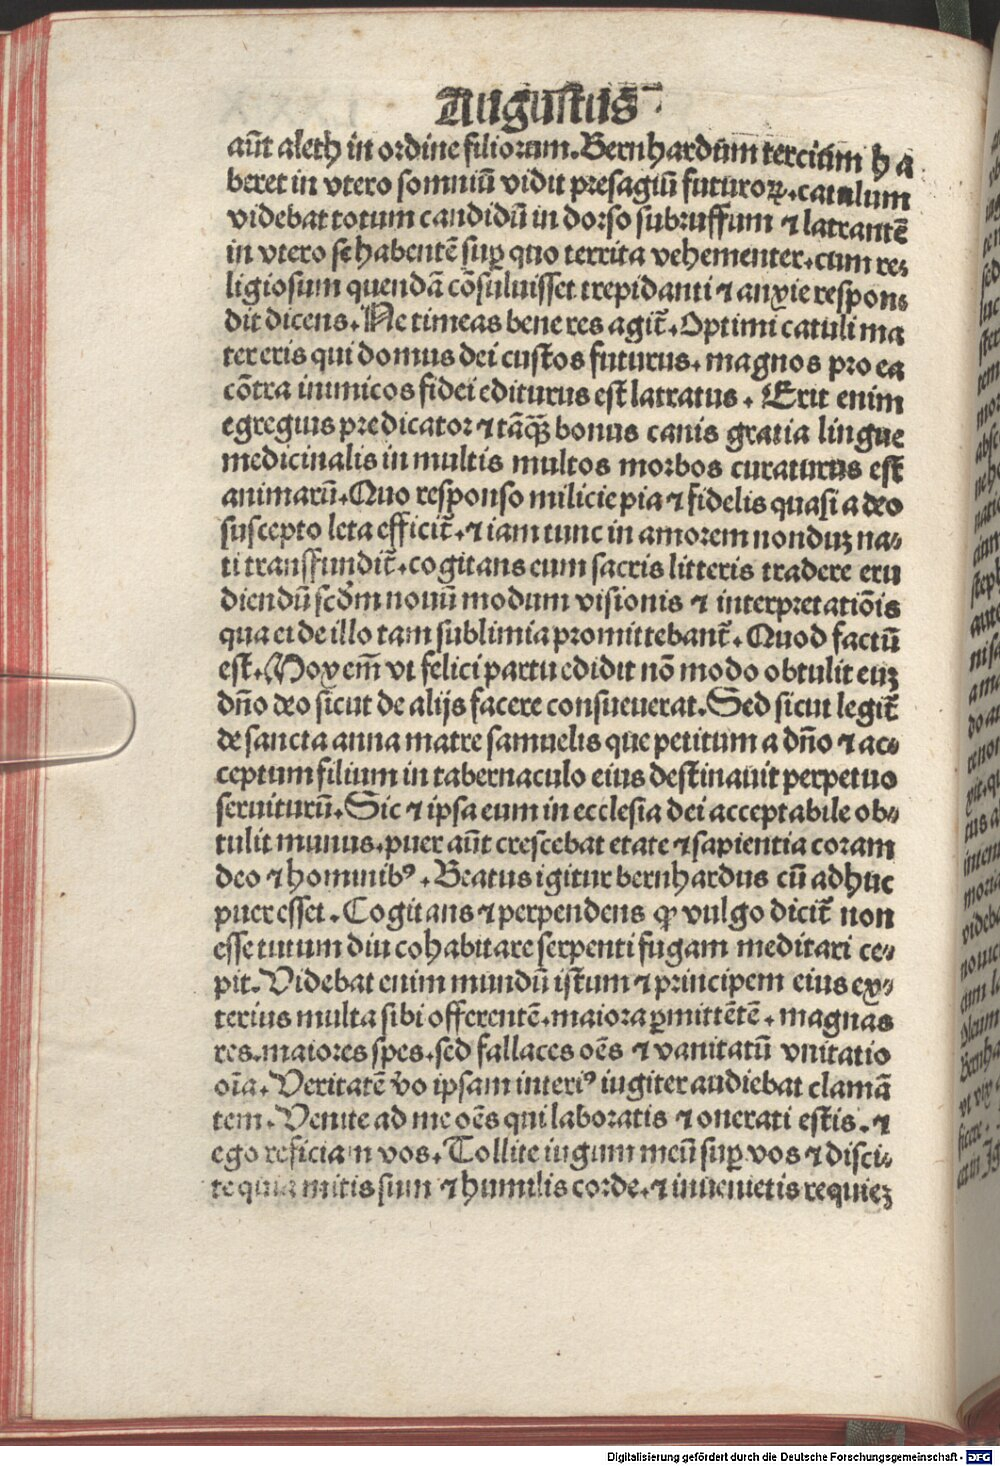 Augustus
aūt aleth in ordine filiorum. Bernhardūm tercium ha
beret in vtero somniū vidit presagiū futuroꝝ. catulum
videbat totum candidū in dorso subruffum ⁊ latrantē
in vtero se habentē suꝑ quo territa vehementer. cum re⸗
ligiosum quendā cōsuluisset trepidanti ⁊ anxie respon⸗
dit dicens. Ne timeas bene res agit̄. Optimi catuli ma
ter eris qui domus dei custos futurus. magnos pro ea
cōtra inimicos fidei editurus est latratus. Erit enim
egregius predicator ⁊ tāq̄ꝫ bonus canis gratia lingue
medicinalis in multis multos morbos curaturus est
animarū. Quo responso milicie pia ⁊ fidelis quasi a deo
suscepto leta efficit̄. ⁊ iam tunc in amorem nonduꝫ na⸗
ti transfundit̄. cogitans eum sacris litteris tradere eru
diendū scd̄m nouū modum visionis ⁊ interpretatiōis
qua ei de illo tam sublimia promittebant̄. Quod factū
est. Mox em̄ vt felici partu edidit nō modo obtulit euꝫ
dn̄o deo sicut de alijs facere consueuerat. Sed sicut legit̄
de sancta anna matre samuelis que petitum a dn̄o ⁊ ac⸗
ceptum filium in tabernaculo eius destinauit perpetuo
seruiturū. Sic ⁊ ipsa eum in ecclesia dei acceptabile ob⸗
tulit munus. puer aūt crescebat etate ⁊ sapientia coram
deo ⁊ hominibꝰ. Beatus igitur bernhardus cū adhuc
puer esset. Cogitans ⁊ perpendens ꝙ vulgo dicit̄ non
esse tutum diu cohabitare serpenti fugam meditari ce⸗
pit. Videbat enim mundū istum ⁊ principem eius ex⸗
terius multa sibi offerentē. maiora ꝓmittētē. magnas
res. maiores spes. sed fallaces oēs ⁊ vanitatū vnitatio
oīa. Veritatē v̄o ipsam interiꝰ iugiter audiebat clamā
tem. Venite ad me oēs qui laboratis ⁊ onerati estis. ⁊
ego reficiam vos. Tollite iugum meū suꝑ vos ⁊ disci⸗
te quia mitis sum ⁊ humilis corde. ⁊ inuenietis requieꝫ
Digitalisierung gefördert durch die Deutsche Forschungsgemeinschaft - DFG